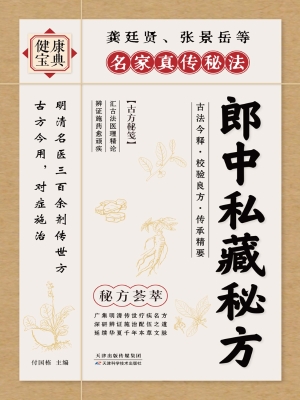 健康宝典
龚廷贤、张景岳等
名家真传秘法
郎中私藏秘方
古法今释·校验良方·传承精要
【古方秘笺】
汇古法医理精论
辨证施药愈顽疾
明清名医三百余剂传世方
古方今用，对症施治
秘方荟萃
广集明清传世疗疾名方
深研辨证施治配伍之道
延续华夏千年本草文脉
付国栋 主编
天津出版传媒集团
天津科学技术出版社